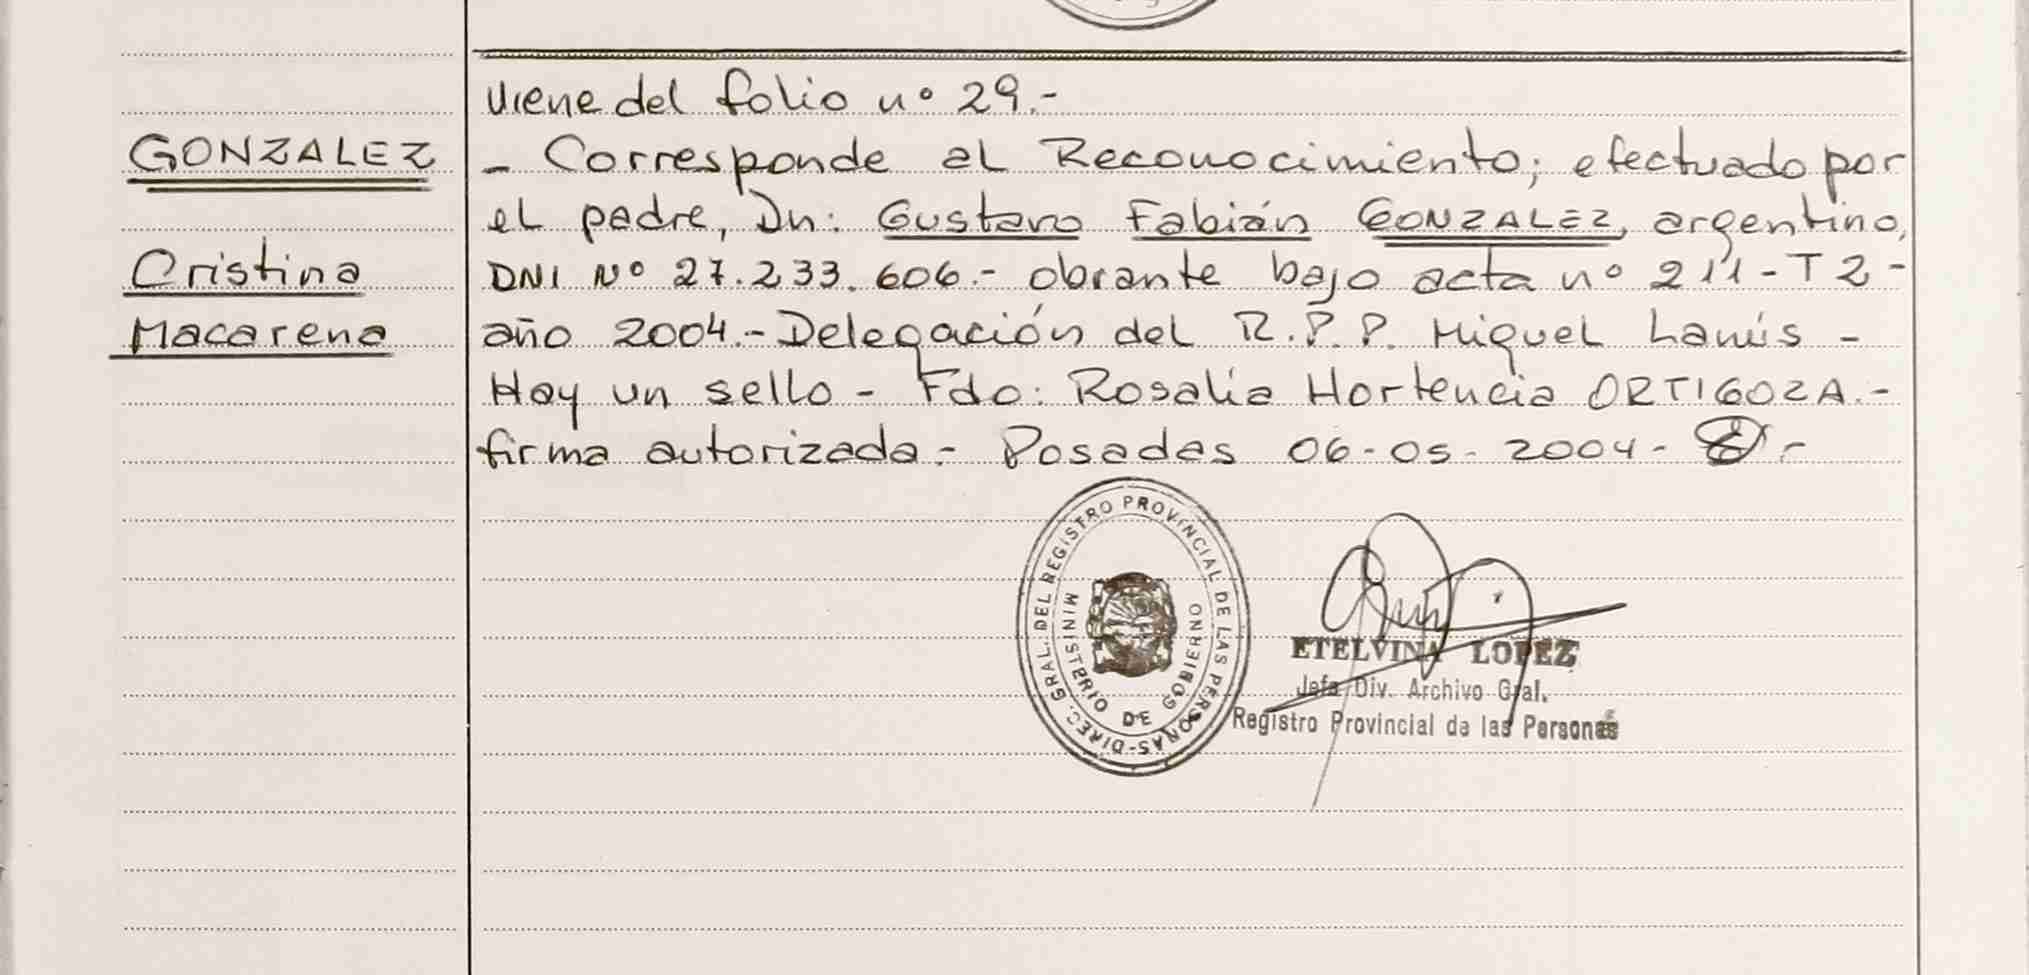 GONZALEZ
Cristina
Macarena
Viene del folio nº 29.-
- Corresponde al Reconocimiento; efectuado por
el padre, Dn: Gustavo Fabián GONZALEZ, argentino,
DNI Nº 27.233.606.- obrante bajo acta nº 211-T2-
año 2004.- Delegación del R.P.P. Miguel Lanús -
Hay un sello - Fdo: Rosalía Hortencia ORTIGOZA.-
firma autorizada.- Posadas 06-05-2004-
DIREC. GRAL. DEL REGISTRO PROVINCIAL DE LAS PERSONAS-
MINISTERIO DE GOBIERNO
ETELVINA LOPEZ
Jefa Div. Archivo Gral.
Registro Provincial de las Personas